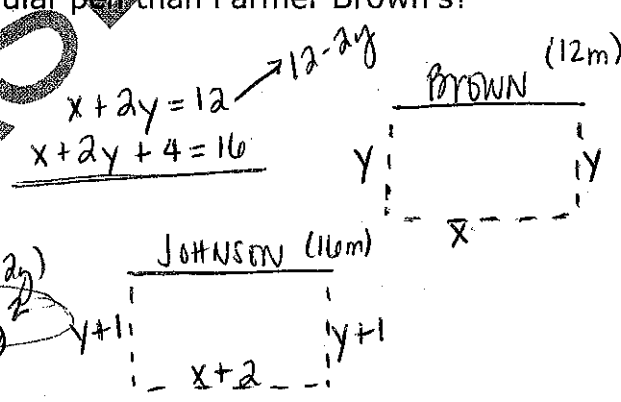 pen than Farmer Brown's?
x + 2y = 12 → 12-2y
x + 2y + 4 = 16
BROWN (12m)
y
y
x
JOHNSON (16m)
y+1
y+1
x+2